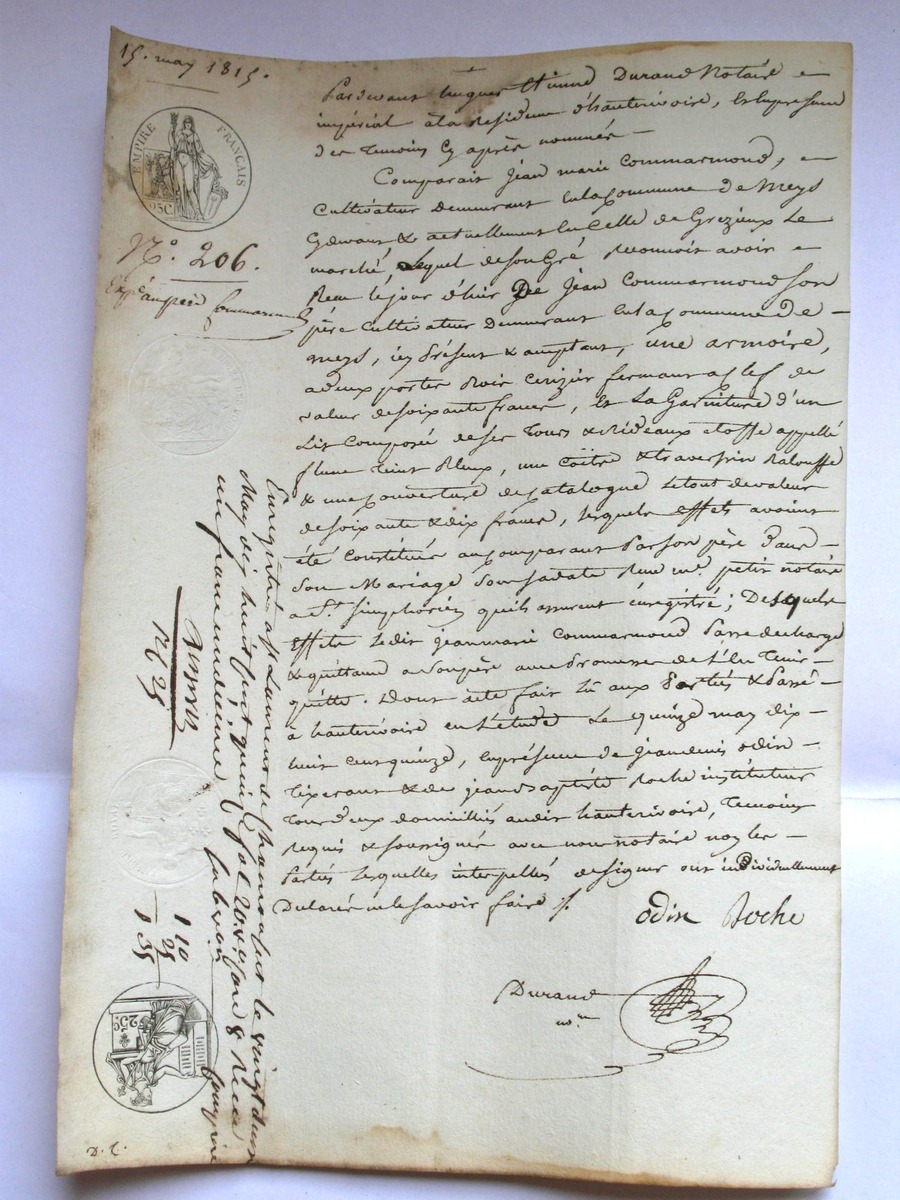 15. may 1815.
EMPIRE FRANÇAIS
25C.
N.o 206.
Pardevant Durand Notaire
impérial à la Residence d'hauterivoire, En la presence
des Temoins Cy après nommés
Comparait Jean marie Commarmond,
Cultivateur Demeurant En la Commune De Meys
Cydevant & actuellement En Celle de Grezieux Le
marché, Lequel de son Gré reconnoit avoir
Recu le jour d'hier De Jean Commarmond son
père Cultivateur Demeurant En la Commune de
Meys, icy Présent & acceptant, une armoire,
a deux portes Bois Cerizier fermant a Clef de
valeur de soixante francs, Et La Garniture d'un
Lit Composée de ses Tours & Rideaux Etoffe appellé
flune Teint Bleux, une Coitre & traversin Balouffe
& une Couverture de Catalogne le tout de valeur
de soixante & dix francs, lesquels Effets avoient
été Constitués au Comparant Par son père Dans
Son Mariage Sous sa date Recu me. petit notaire
a St. Simphorien qu'ils assurent Enregistré; Desquels
Effets Ledit Jean marie Commarmond Passe decharge
& quittance a Son père avec Promesse de L'En Tenir
quitte. Dont acte fait Lû aux Parties & Passé
à hauterivoire en L'etude Le quinze may dix
huit cent quinze, En presence de Jean denis Odin
Tixerant & de Jean Baptiste Roche instituteur
Tous deux domicilliés audit hauterivoire, Temoins
requis & soussignés avec nous notaire non les
Parties Lesquelles interpellés de signer ont individuellement
Declarés ne le savoir faire ./.
Odin Roche
Durand
nre
Enregistré a St Laurent de Chamousset le vingt deux
May dix huit cent quinze fol 20 Case 8 Recu
un franc
12 25
1 10
25
1 35
25C.
D. C.